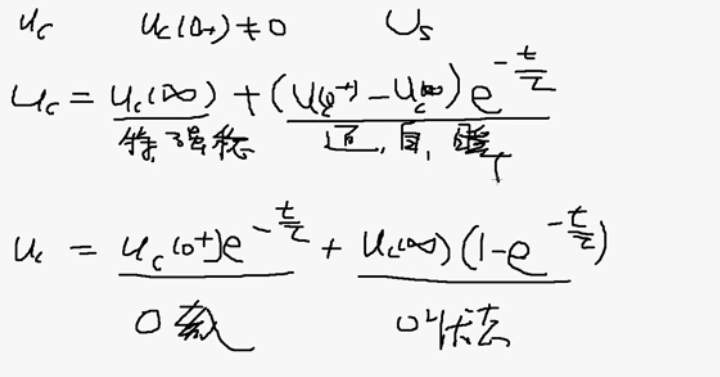 u_c u_c(0+)≠0 U_s
u_c = u_c(∞) + (u_c(0+) - u_c(∞)) e^{-t/τ}
特,强,稳 通,自,暂
u_c = u_c(0+)e^{-t/τ} + u_c(∞)(1-e^{-t/τ})
0输入 0状态